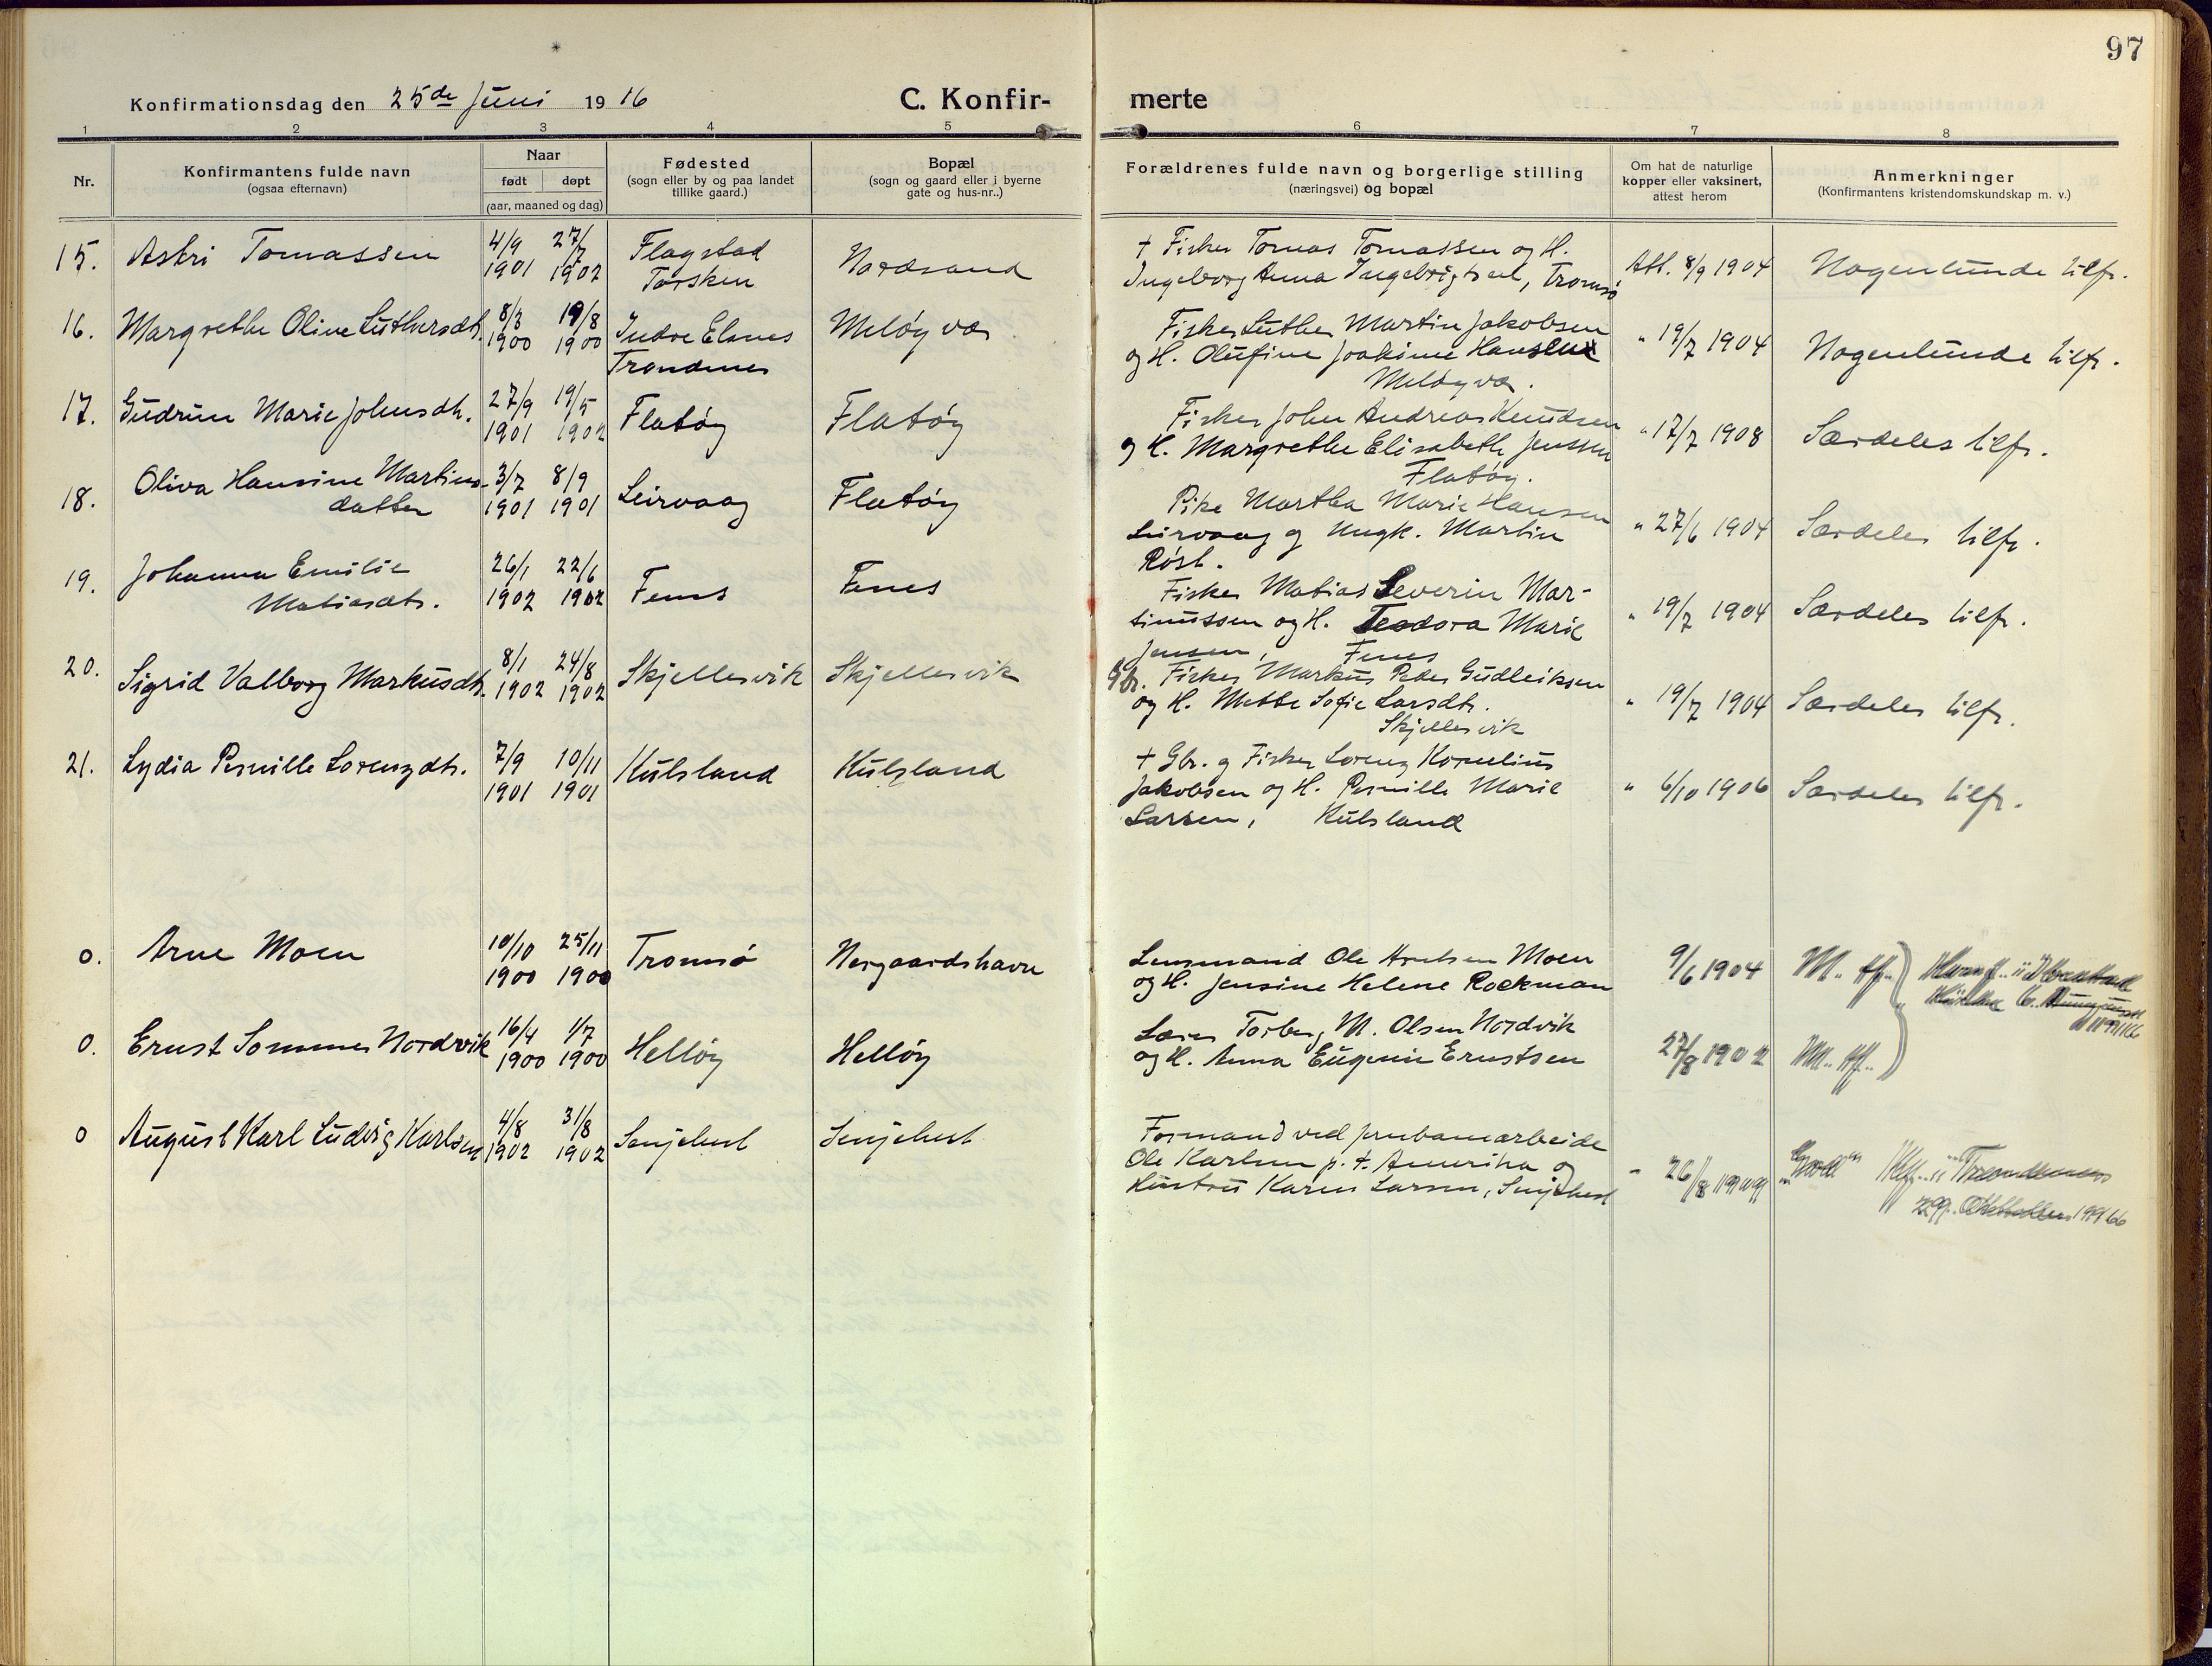 97
Konfirmationsdag den 25de Juni 1916
C. Konfir-
merte
1 2 3 4 5 6 7 8
Nr.
Konfirmantens fulde navn
(ogsaa efternavn)
Naar
født døpt
(aar, maaned og dag)
Fødested
(sogn eller by og paa landet
tillike gaard.)
Bopæl
(sogn og gaard eller i byerne
gate og hus-nr..)
Forældrenes fulde navn og borgerlige stilling
(næringsvei) og bopæl
Om hat de naturlige
kopper eller vaksinert,
attest herom
Anmerkninger
(Konfirmantens kristendomskundskap m. v.)
15. Astri Tomassen
4/9 27/7
1901 1902
Flagstad
Torsken
Nordsand
+ Fisker Tomas Tomassen og H.
Ingeborg Anna Ingebrigtsen, Tromsø
Att. 8/9 1904
Nogenlunde tilfr.
16. Margrethe Oline Luthersdtr.
8/3 19/8
1900 1900
Indre Elsnes
Trondenes
Meløyvær
Fisker Luther Martin Jakobsen
og H. Olufine Joakime Hansen
Meløyvær.
" 19/7 1904
Nogenlunde tilfr.
17. Gudrun Marie Johnsdtr.
27/9 19/5
1901 1902
Flatøy
Flatøy
Fisker John Andreas Knudsen
og H. Margrethe Elisabeth Jenssen
Flatøy.
" 17/7 1908
Særdeles tilfr.
18. Oliva Hansine Martins-
datter
3/7 8/9
1901 1901
Leirvaag
Flatøy
Pike Martha Marie Hansen
Leirvaag og Ungk. Martin
Røst.
" 27/6 1904
Særdeles tilfr.
19. Johanna Emilie
Matiasdtr.
26/1 22/6
1902 1902
Fenes
Fenes
Fisker Matias Severin Mar-
tinussen og H. Teodora Marie
Jensen, Fenes
" 19/7 1904
Særdeles tilfr.
20. Sigrid Valborg Markusdtr.
8/1 24/8
1902 1902
Skjellesvik
Skjellesvik
Gbr. Fisker Markus Peder Gudleiksen
og H. Mette Sofie Larsdtr.
Skjellesvik
" 19/7 1904
Særdeles tilfr.
21. Lydia Pernille Lorenzdtr.
7/9 10/11
1901 1901
Kulsland
Kulsland
+ Gbr. og Fisker Lorenz Kornelius
Jakobsen og H. Pernille Marie
Larsen, Kulsland
" 6/10 1906
Særdeles tilfr.
0. Arne Moen
10/10 25/11
1900 1900
Tromsø
Nergaardshavn
Lensmand Ole Moen
og H. Jensine Helene Rockman
9/6 1904
M. tf.
0. Ernst Sommer Nordvik
16/4 1/7
1900 1900
Helløy
Helløy
Lærer Torberg M. Olsen Nordvik
og H. Anna Eugenie Ernstsen
27/8 1902
M. tf.
0 August Karl Ludvig Karlsen
4/8 31/8
1902 1902
Senjehest
Senjehest
Formand ved jernbanearbeide
Ole Karlsen p. t. Amerika og
Hustru Karen Larsen, Senjehest
Trondenes